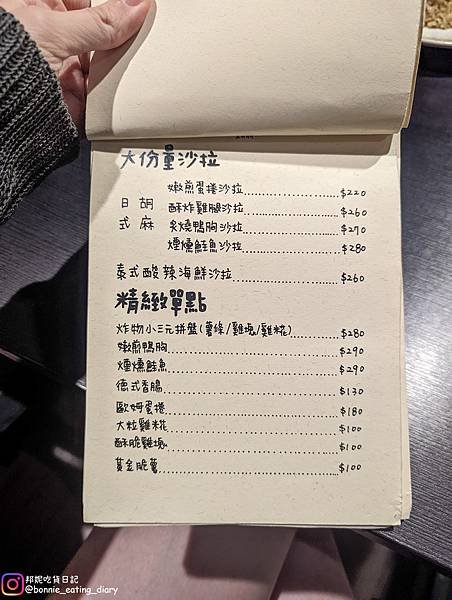 大份量沙拉
嫩煎蛋捲沙拉 $220
日 胡 酥炸雞腿沙拉 $260
式 麻 炙燒鴨胸沙拉 $270
煙燻鮭魚沙拉 $280
泰式酸辣海鮮沙拉 $260
精緻單點
炸物小三元拼盤(薯條/雞塊/雞柳) $280
嫩煎鴨胸 $290
煙燻鮭魚 $290
德式香腸 $130
歐姆蛋捲 $180
大粒雞米花 $100
酥脆雞塊 $100
黃金脆薯 $100
邦妮吃貨日記
@bonnie_eating_diary